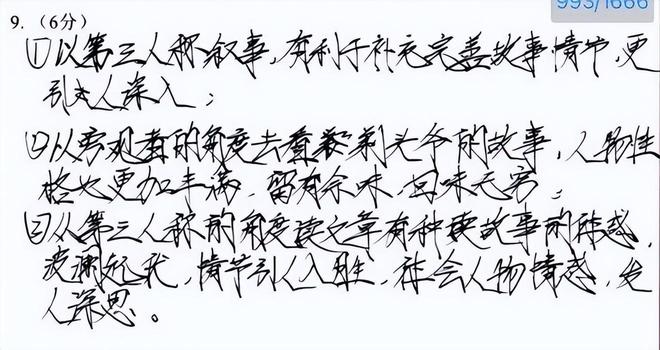 993/1666
9. (6分)
①以第三人称叙事,有利于补充完善故事情节,更
引人深入;
②以旁观者的角度去看剃头爷的故事,人物性
格也更加丰满,留有余味,回味无穷;
③从第三人称的角度读文章有种读故事的体感,
波澜起伏,情节引人入胜,体会人物情感,发
人深思。